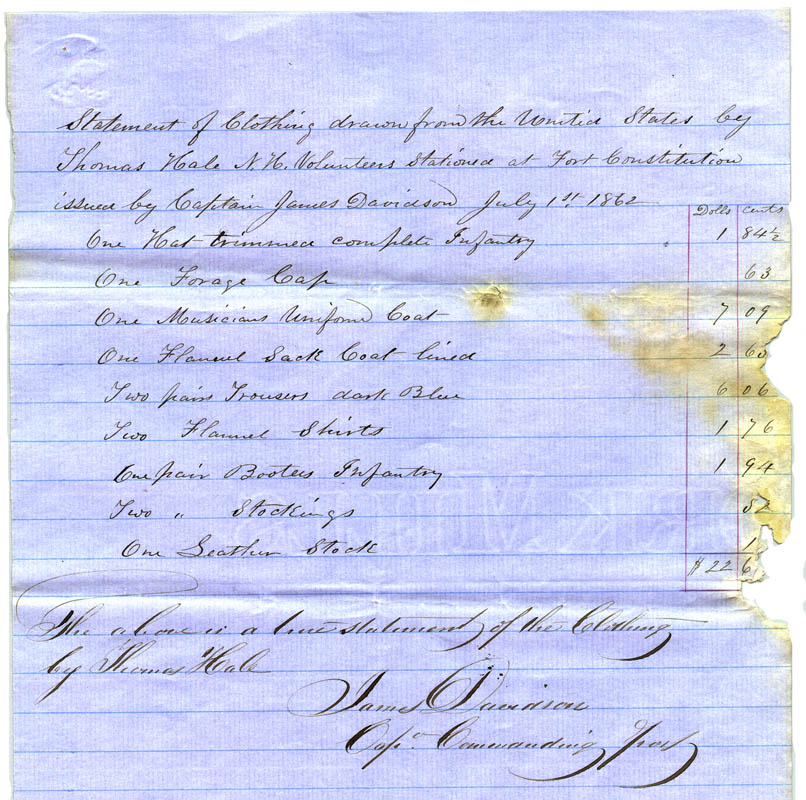 Statement of Clothing drawn from the United States by
Thomas Hale N.H. Volunteers Stationed at Fort Constitution
issued by Captain James Davidson July 1st 1862
Dolls Cents
One Hat trimmed complete Infantry 1 84½
One Forage Cap 63
One Musicians Uniform Coat 7 09
One Flannel Sack Coat lined 2 60
Two pairs Trousers dark Blue 6 06
Two Flannel Shirts 1 76
One pair Bootees Infantry 1 94
Two " Stockings 52
One Leather Stock 1
$ 22 6
The above is a true statement of the Clothing
by Thomas Hale
James Davidson
Capn Commanding Post